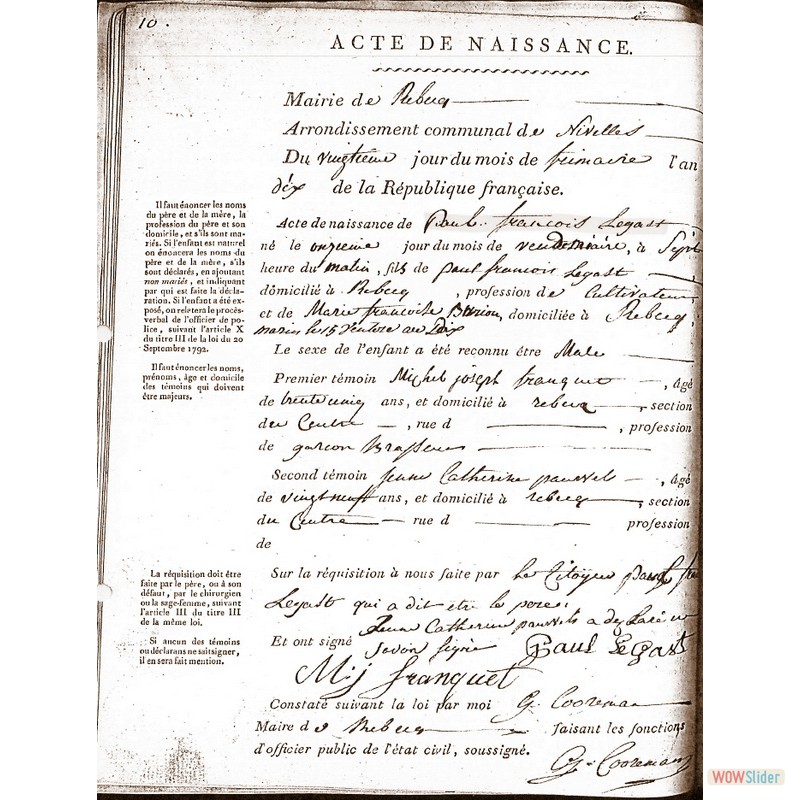 10.
ACTE DE NAISSANCE.
Mairie de Rebecq
Arrondissement communal de Nivelles
Du vingtieme jour du mois de frimaire l'an
dix de la République française.
Il faut énoncer les noms
du père et de la mère, la
profession du père et son
domicile, et s'ils sont ma-
riés. Si l'enfant est naturel
on énoncera les noms du
père et de la mère, s'ils
sont déclarés, en ajoutant
non mariés, et indiquant
par qui est faite la décla-
ration. Si l'enfant a été ex-
posé, on relatera le procès-
verbal de l'officier de po-
lice, suivant l'article X
du titre III de la loi du 20
Septembre 1792.
Acte de naissance de Paul francois Legast
né le onzieme jour du mois de vendemiaire, à Sept
heure du matin, fils de paul francois Legast
domicilié à Rebecq, profession de Cultivateur
et de Marie francoise domiciliée à Rebecq,
mariés le 15 ventose an Dix
Le sexe de l'enfant a été reconnu être Male
Il faut énoncer les noms,
prénoms, âge et domicile
des témoins qui doivent
être majeurs.
Premier témoin Michel joseph franquet, âgé
de trente cinq ans, et domicilié à rebecq, section
du Centre, rue d , profession
de garcon Brasseur
Second témoin Jenne Catherine pauwels, âgé
de vingt neuf ans, et domicilié à rebecq, section
du Centre rue d profession
de
La réquisition doit être
faite par le père, ou à son
défaut, par le chirurgien
ou la sage-femme, suivant
l'article III du titre III
de la même loi.
Sur la réquisition à nous faite par Le Citoyen paul fr
Legast qui a dit etre le pere;
Si aucun des témoins
ou déclarans ne sait signer,
il en sera fait mention.
Jenne Catherine pauwels a declaré n
Et ont signé savoir signé Paul Legast
M: j franquet
Constaté suivant la loi par moi G. Cooreman
Maire de Rebecq faisant les fonctions
d'officier public de l'état civil, soussigné.
G. Cooreman
WOWSlider